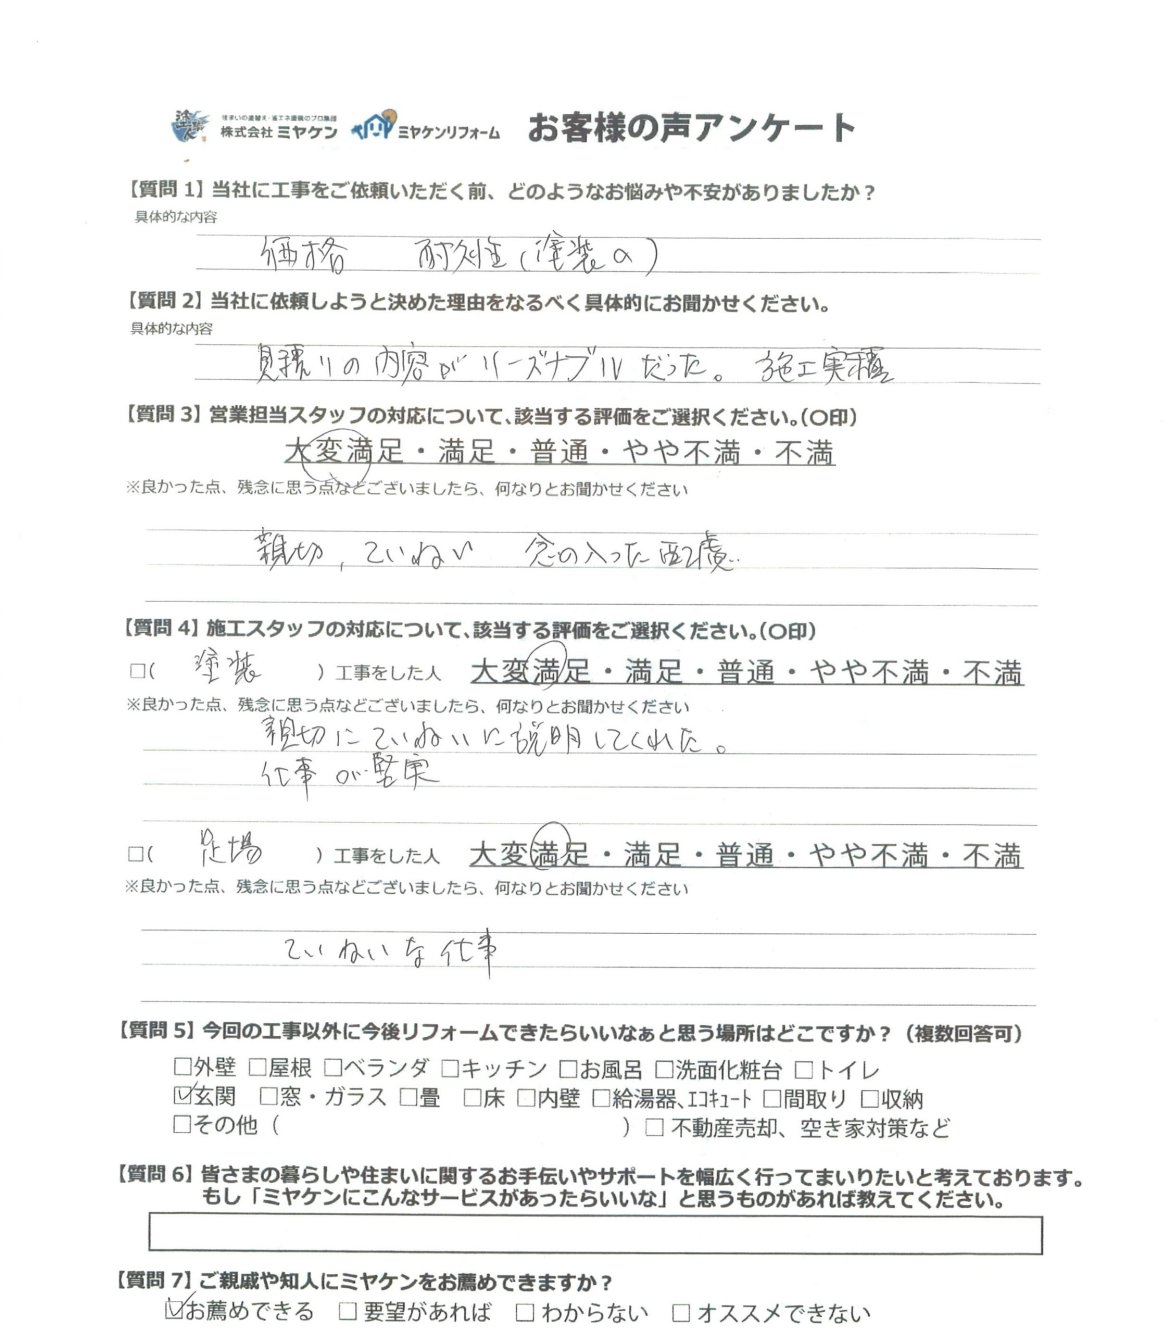 住まいの塗替え・省エネ塗装のプロ集団
株式会社 ミヤケン ミヤケンリフォーム お客様の声アンケート
【質問 1】当社に工事をご依頼いただく前、どのようなお悩みや不安がありましたか？
具体的な内容
価格 耐久性(塗装の)
【質問 2】当社に依頼しようと決めた理由をなるべく具体的にお聞かせください。
具体的な内容
見積りの内容がリーズナブルだった。 施工実積
【質問 3】営業担当スタッフの対応について、該当する評価をご選択ください。（〇印）
大変満足・満足・普通・やや不満・不満
※良かった点、残念に思う点などございましたら、何なりとお聞かせください
親切, ていねい 念の入った配慮
【質問 4】施工スタッフの対応について、該当する評価をご選択ください。（〇印）
□（ 塗装 ）工事をした人 大変満足・満足・普通・やや不満・不満
※良かった点、残念に思う点などございましたら、何なりとお聞かせください
親切にていねいに説明してくれた。
仕事が堅実
□（ 足場 ）工事をした人 大変満足・満足・普通・やや不満・不満
※良かった点、残念に思う点などございましたら、何なりとお聞かせください
ていねいな仕事
【質問 5】今回の工事以外に今後リフォームできたらいいなぁと思う場所はどこですか？（複数回答可）
□外壁 □屋根 □ベランダ □キッチン □お風呂 □洗面化粧台 □トイレ
☑玄関 □窓・ガラス □畳 □床 □内壁 □給湯器、ｴｺｷｭｰﾄ □間取り □収納
□その他（ ）□ 不動産売却、空き家対策など
【質問 6】皆さまの暮らしや住まいに関するお手伝いやサポートを幅広く行ってまいりたいと考えております。
もし「ミヤケンにこんなサービスがあったらいいな」と思うものがあれば教えてください。
【質問 7】ご親戚や知人にミヤケンをお薦めできますか？
☑お薦めできる □ 要望があれば □ わからない □ オススメできない